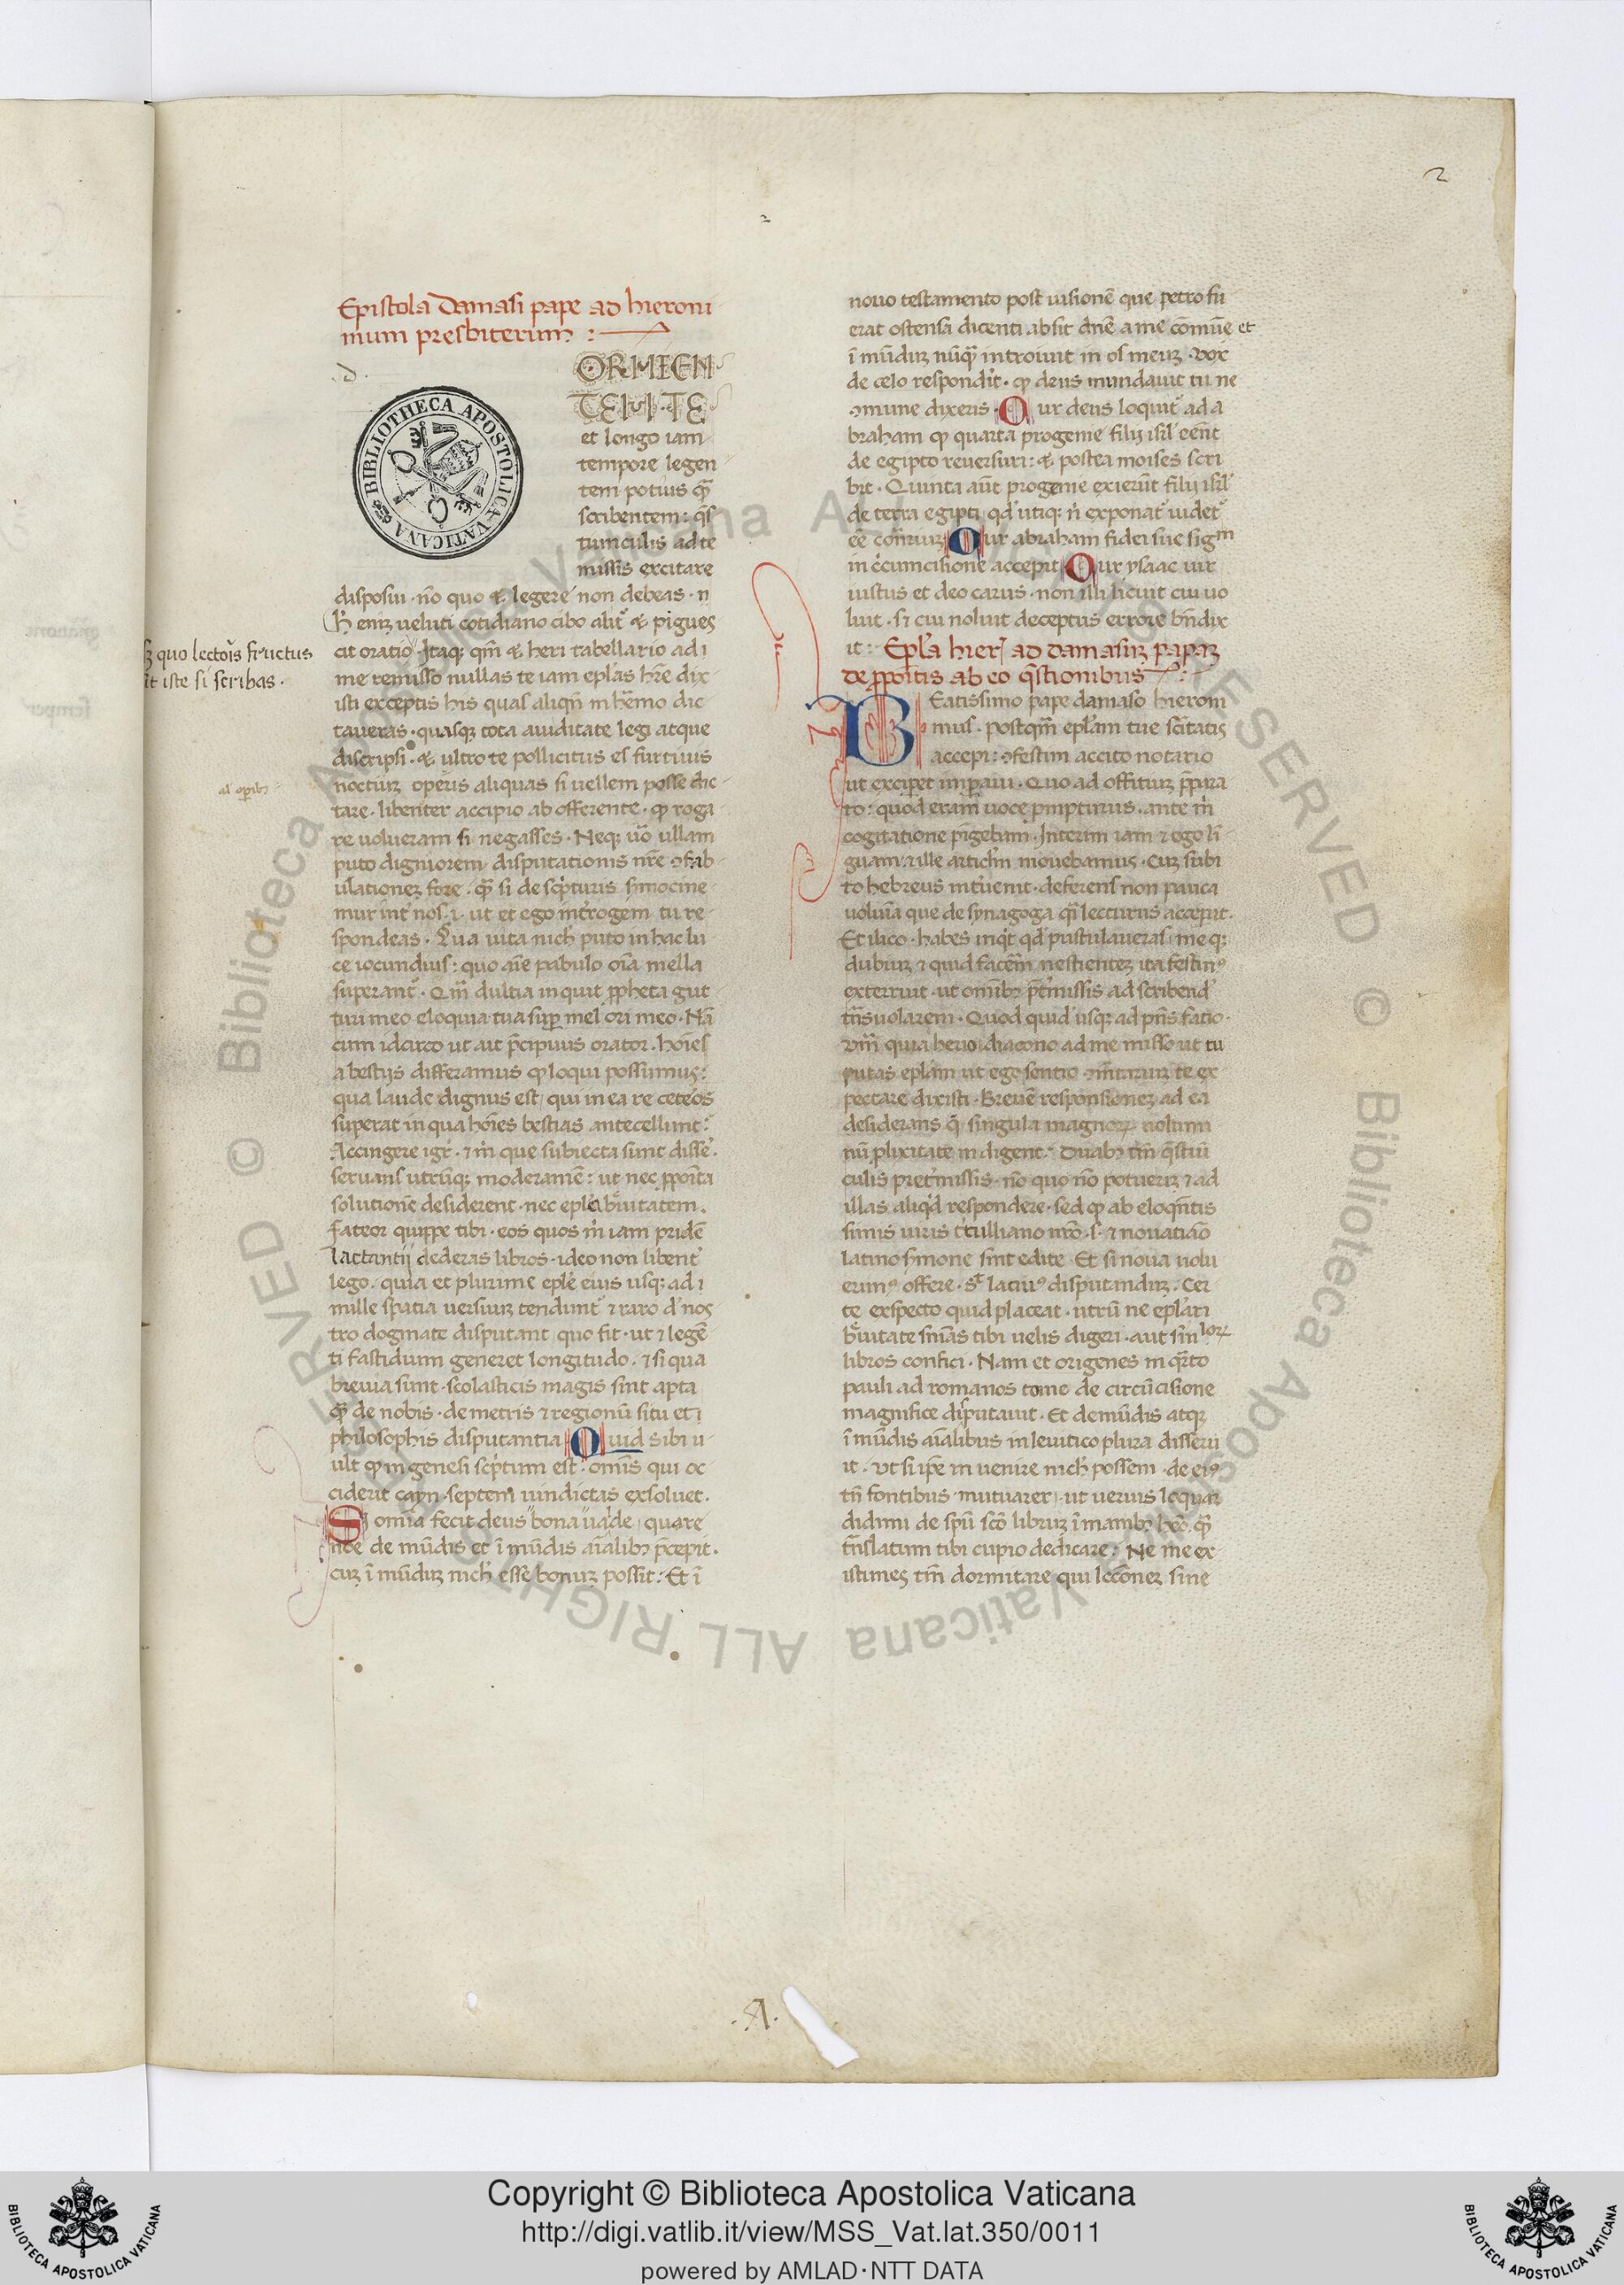 2
Epistola Damasi pape ad hieroni
mum presbiterum :
d.
ORMIEN
TEM TE
et longo iam
tempore legen
tem potius qm̄
scribentem: q̄s
tiunculis ad te
missis excitare
disposui. nō quo & legere non debeas. n
h̓ eniꝫ ueluti cotidiano cibo alit᷑ & pigues
cit oratio Itaqꝫ qm̄ & heri tabellario ad i
me remisso nullas te iam ep̄las hr̄e dix
isti exceptis his quas aliqn̄ in h̓emo dic
taueras. quasqꝫ tota auiditate legi atque
discripsi. & ultro te pollicitus es furtiuis
noctuꝫ operis aliquas si uellem posse dic
tare. libenter accipio ab offerente. ꝙ roga
re uolueram si negasses. Neqꝫ uō ullam
puto digniorem disputationis nr̄e ꝯfab
ulationeꝫ fore. qm̄ si de scpturis sermocine
mur int̓ nos. i. ut et ego int̓rogem tu re
spondeas. Qua uita nich̓ puto in hac lu
ce iocundius: quo aīe pabulo oīa mella
superant᷑. Qm̄ dultia inquit ꝓpheta gut
turi meo eloquia tua suꝑ mel ori meo. Nā
cum idcirco ut ait p̄cipuus orator. hoīes
a bestijs differamus ꝙ loqui possumus:
qua laude dignus est qui in ea re ceteros
superat in qua hoīes bestias antecellunt:
Accingere igr̄. ⁊ m̓ que subiecta sunt disse.
seruans utrūqꝫ moderamē: ut nec ꝓpōita
solutionē desiderent. nec ep̄le b̓uitatem.
fateor quippe tibi. eos quos m̓ iam pridē
lactantij dederas libros. ideo non libent̓
lego. quia et plurime ep̄le eius usqꝫ ad i
mille spatia uersuuꝫ tendunt᷑ ⁊ raro d̓ nos
tro dogmate disputant quo fit. ut ⁊ legē
ti fastidium generet longitudo. ⁊ si qua
breuia sunt. scolasticis magis sint apta
qm̄ de nobis. de metris ⁊ regionū situ et i
philosophis disputantia Quid sibi u
ult ꝙ in genesi scptum est. omīs qui oc
ciderit cayn. septem uindictas exsoluet.
Si omīa fecit deus bona ualde quare
noe de mūdis et ī mūdis aīalibꝫ p̄cepit.
cuꝫ ī mūduꝫ nich̓ esse bonuꝫ possit: Et ī
sꝫ quo lectoīs fructus
it iste si scribas.
al oꝑibꝫ
nouo testamento post uisionē que petro fu
erat ostensa dicenti absit dn̄e a me comūe et
ī mūduꝫ nūq̄ introiuit in os meuꝫ. vox
de celo respondit. ꝙ deus mundauit tu ne
ꝯmune dixeris. Cur deus loquit᷑ ad a
braham ꝙ quarta progenie filij isrl̓ eēnt
de egipto reuersuri: & postea moises scri
bit. Quinta aūt progenie exierūt filij isrl̓
de terra egipti qd̓ utiqꝫ n̓ exponat᷑ uidet᷑
eē contrariuꝫ Cur abraham fidei sue sigm
in c̓cumcisione accepit Cur ysaac uir
iustus et deo carus. non illi licuit cui uo
luit. si cui noluit deceptus errore bn̄dix
it: Ep̄la hier̓ ad damasuꝫ papaꝫ
de ꝓpoītis ab eo q̄stionibus:
Beatissimo pape damaso hieroni
mus. postqm̄ ep̄lam tue sc̄itatis
accepi: ꝯfestim accito notario
ut exciperet impaui. Quo ad offituꝫ p̄para
to: quod eram uoce ꝓmpturus. ante m̓
cogitatione pigebam. Interim iam ⁊ ego li
guam ⁊ ille articlm̄ mouebamus. Cuꝫ subi
to hebreus int̓uenit. deferens non pauca
uolūia que de synagoga q̄i lecturus acceperat.
Et ilico. habes inqt qd̓ pustulaueras. meqꝫ
dubiuꝫ ⁊ quid facēm nescienteꝫ ita festinꝰ
exterruit. ut omībꝫ p̄t̓missis ad scribend̓
tn̄suolarem. Quod quid usqꝫ ad pn̄s facio.
Vm̄ quia heri diacono ad me misso ut tu
putas ep̄lam ut ego sentio ꝯmētariuꝫ te ex
pectare dixisti. Breuē responsioneꝫ ad ea
desiderans q̄ singula magnoꝝ uolumi
nū ꝓlixitate indigent. Duabꝫ tm̄ q̄stiū
culis pret̓missis. nō quo nō potueriꝫ ⁊ ad
illas aliqd respondere. sed ꝙ ab eloqn̄tis
simis uiris t̓tulliano nr̄o. s. ⁊ nouatiāo
latino sermone sint edite Et si noua uolu
erimꝰ offere. st̄ latiuꝰ disputanduꝫ. Cer
te exspecto quid placeat. utrū ne ep̄lari
b̓uitate sn̄ias tibi uelis digeri. aut singloꝝ
libros confici. Nam et origenes in q̄rto
pauli ad romanos tomo de circūcisione
magnifice disputauit. Et de mūdis atqꝫ
ī mūdis aīalibus in leuitico plura disserui
it. Ut si ipē in uenire nich̓ possem. de eiꝰ
tn̄ fontibus mutuarer. ut uerius loquar
didimi de spū scō libruꝫ ī manibꝫ heō. qm̄
tn̄slatum tibi cupio dedicare: Ne me ex
istimes tm̄ dormitare qui lecōneꝫ sine
.A.
BIBLIOTHECA APOSTOLICA VATICANA
© Biblioteca Apostolica Vaticana ALL RIGHTS RESERVED
Copyright © Biblioteca Apostolica Vaticana
http://digi.vatlib.it/view/MSS_Vat.lat.350/0011
powered by AMLAD·NTT DATA
BIBLIOTECA APOSTOLICA VATICANA
BIBLIOTECA APOSTOLICA VATICANA